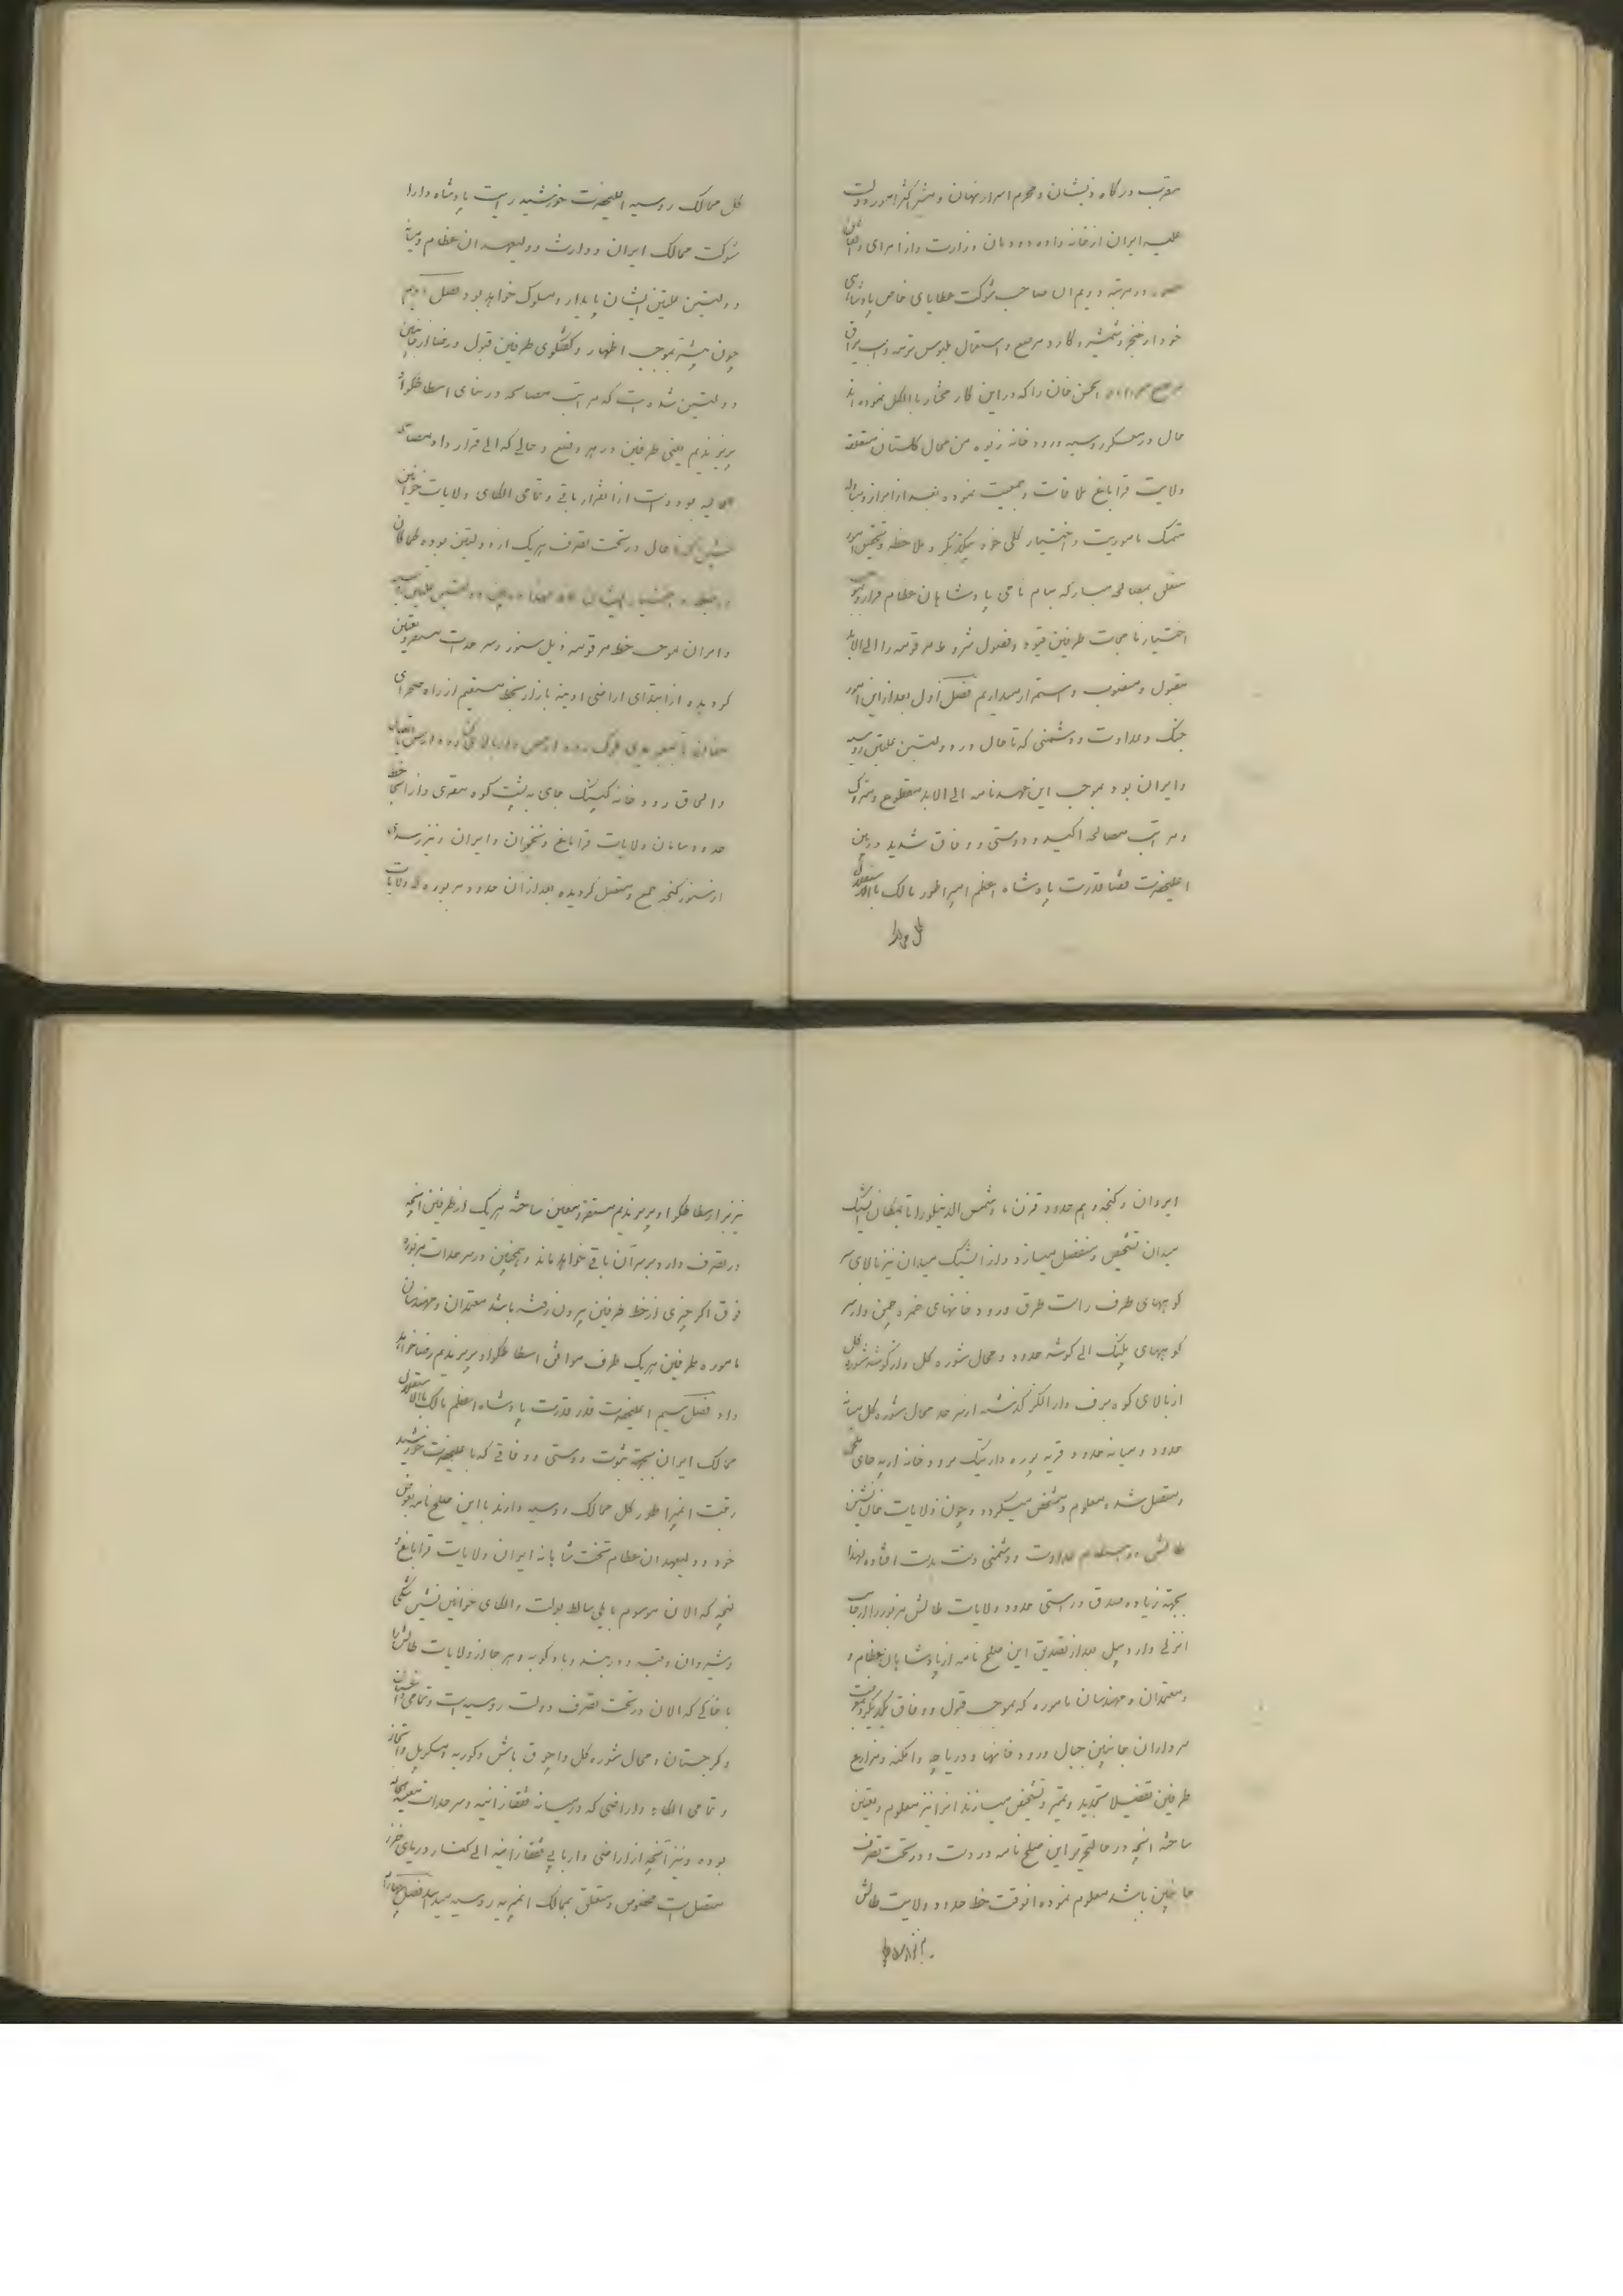 مقرب درگاه ذیشان و محرم اسرار نهان و مشیر اکثر امور دولت
علیه ایران از خانواده دودمان وزارت و از امرای واقفان
حضور در مرتبه دویم آن صاحب شوکت عطایای خاص پادشاهی
خود از خنجر و شمشیر و کارد مرصع و استعمال ملبوس ترمه و اسب یراق
مرصع ابوالحسن خان را که در این کار مختار بالکل نموده اند
حال در معسکر روسیه رودخانه زیوه من محال گلستان متعلقه
ولایت قراباغ ملاقات و جمعیت نمودند بعد از ابراز و مبادله
متمسک ماموریت و اختیار کلی خود بیکدیگر و ملاحظه و تحقیق امور
متعلق بمصالحه مبارکه بنام نامی پادشاهان عظام قرار و بموجب
اختیارنامجات طرفین قیود و فصول شروط مرقومه را الی الابد
مقبول و منصوب و استمرار میداریم فصل اول بعد از این امور
جنک و عداوت و دشمنی که تا حال در دولتین علیتین روسیه
و ایران بود بموجب این عهدنامه الی الابد مقطوع و متروک
و مراتب مصالحه اکید و دوستی و وفاق شدید در بین
اعلیحضرت قضا قدرت پادشاه اعظم امپراطور مالک بالاستقلال
کل ممالک
کل ممالک روسیه و اعلیحضرت خورشید رایت پادشاه دارا
شوکت ممالک ایران و وارث و ولیعهدان عظام و میانه
دولتین علیتین ایشان پایدار و مسلوک خواهد بود فصل دویم
چون پیشتر بموجب اظهار و گفتگوی طرفین قبول و رضا از جانبین
دولتین شده است که مراتب مصالحه در بنای اسطاطسکوا
پریزندیم یعنی طرفین در هر وضع و حالی که الی قرارداد مصالحه
الحالیه بوده است از آنقرار باقی و تمامی الکای ولایات خوانین
نشین که تا حال در تحت تصرف هریک از دولتین بوده کماکان
در ضبط و اختیار ایشان بماند لهذا در بین دولتین علیتین روسیه
و ایران بموجب خط مرقومه ذیل سنور و سرحدات مستقر و تعیین
گردیده از ابتدای اراضی ادینه بازار بخط مستقیم از راه صحرای
مغان تا بمعبر یدی بلوک رود ارس و از بالای کنار رود ارس تا اتصال
و الحاق رودخانه کپنک چای به پشت کوه مقری و از آنجا خط
حدود سامان ولایات قراباغ و نخجوان و ایروان و نیز رسدی
از سنور کنجه جمع و متصل گردیده بعد از آن حدود مزبوره که ولایات
ایروان و کنجه و هم حدود قزن با و شمس الدینلو را تا بمکان ایشک
میدان تشخیص و منفصل میسازد و از ایشک میدان نیز بالای سر
کوههای طرف راست طرق و رودخانهای حمزه چمن و از سر
کوههای پلنک الی کوشه حدود محال شوره کل و از کوشه شوره کل
از بالای کوه برف و از الکز گذشته از سر حد محال شوره کل میانه
حدود و میانه حدود قریه پدره و ارتیک برودخانه ارپه چای ملحق
و متصل شده معلوم و مشخص میگردد و چون ولایات خان نشین
طالش در هنگام عداوت و دشمنی دست بدست افتاده لهذا
بجهة زیاده صدق و راستی حدود ولایات طالش مزبور را از جانب
انزلی و اردبیل بعد از تصدیق این صلح نامه از پادشاهان عظام و
و معتمدان و مهندسان ماموره که بموجب قبول و وفاق یکدیگر و بمعرفت
سرداران جانبین جبال و رودخانها و دریاچه و امکنه و مزارع
طرفین تفصیلا تجدید و تمیز و تشخیص میسازند آنرا نیز معلوم و تعیین
ساخته آنچه در حال تحریر این صلح نامه در دست و در تحت تصرف
جانبین باشد معلوم نموده آنوقت خط حدود ولایت طالش
نیز بر اسطاطسکوا و پریزندیم مستقر و معین ساخته هریک از طرفین آنچه
در تصرف دارد بر سر آن باقی خواهد ماند و همچنین در سرحدات مزبوره
فوق اگر چیزی از خط طرفین بیرون رفته باشد معتمدان و مهندسان
ماموره طرفین هریک طرف موافق اسطاطسکوا و پریزندیم رضا خواهد
داد فصل سیم اعلیحضرت قدر قدرت پادشاه اعظم مالک بالاستقلال
ممالک ایران بجهة ثبوت دوستی و وفاقی که با اعلیحضرت خورشید
رتبت ایمپراطور کل ممالک روسیه دارند با این صلح نامه بعوض
خود و ولیعهدان عظام تخت شاهانه ایران ولایات قراباغ و
کنجه که الان موسوم به یلی سابط پولست و الکای خوانین نشین شکی
و شیروان و قبه و دربند و بادکوبه و هر جا از ولایات طالش را
با خاکی که الان در تحت تصرف دولت روسیه است و تمامی داغستان
و گرجستان و محال شوره کل و اچوق باش و کوریه و منکریل و ابخاز
و تمامی الکاء و اراضی که در میانه قفقازیه و سرحدات معینة الحالیه
بوده و نیز آنچه از اراضی دریایی قفقازیه الی کنار دریای خزر
متصل است مخصوص و متعلق بممالک ایمپریه روسیه میدانند فصل چهارم